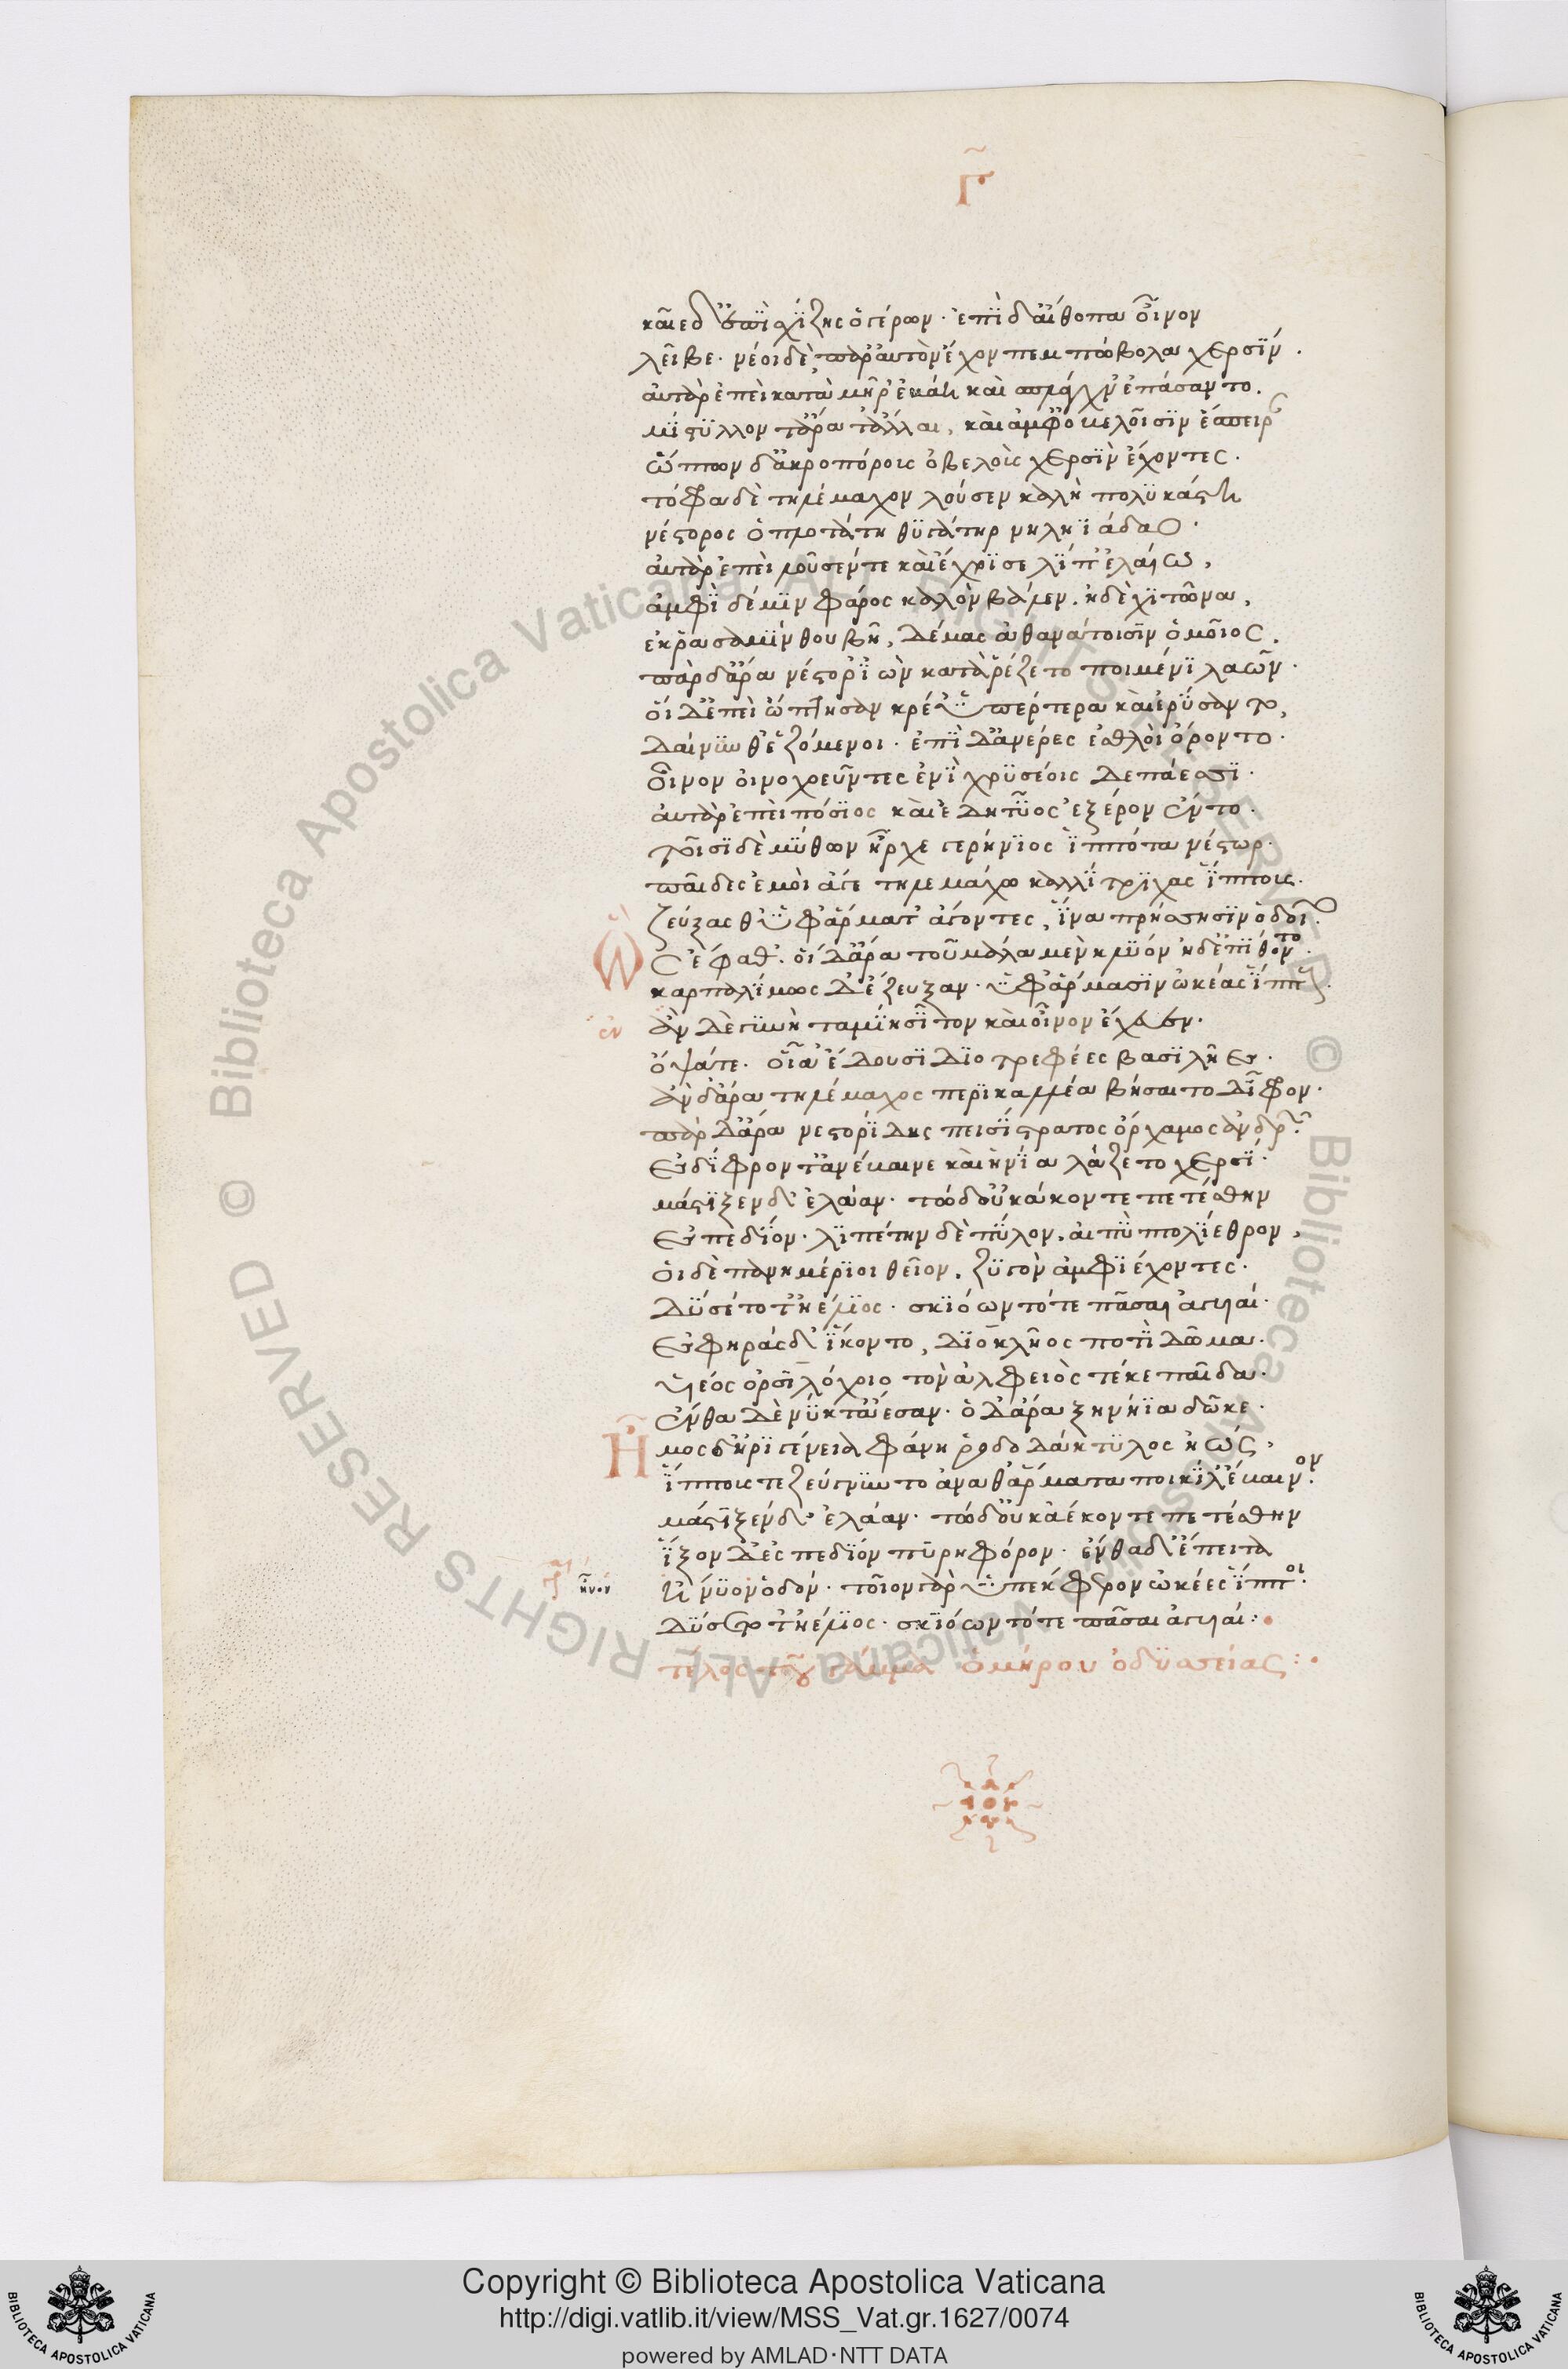 Γ
καῖε δ' ἐπὶ σχίζῃς ὁ γέρων· ἐπὶ δ' αἴθοπα οἶνον
λεῖβε· νέοι δὲ παρ' αὐτὸν ἔχον πεμπώβολα χερσίν.
αὐτὰρ ἐπεὶ κατὰ μῆρ' ἐκάη καὶ σπλάγχν' ἐπάσαντο.
μίστυλλόν τ' ἄρα τἄλλα, καὶ ἀμφ' ὀβελοῖσιν ἔπειρον
ὤπτων δ' ἀκροπόροις ὀβελοὺς χερσὶν ἔχοντες.
τόφρα δὲ τηλέμαχον λοῦσεν καλὴ πολυκάστη
νέστορος ὁπλοτάτη θυγάτηρ νηληϊάδαο.
αὐτὰρ ἐπεὶ λοῦσέν τε καὶ ἔχρισε λίπ' ἐλαίω,
ἀμφὶ δέ μιν φάρος καλὸν βάλεν. ἠδὲ χιτῶνα,
ἐκ ῥ' ἀσαμίνθου βῆ, δέμας ἀθανάτοισιν ὁμοῖος.
πὰρ δ' ἄρα νέστορ' ἰὼν κατὰρ ἕζετο ποιμένι λαῶν.
οἱ δ' ἐπεὶ ὤπτησαν κρέ' ὑπέρτερα καὶ ἐρύσαντο,
δαίνυνθ' ἑζόμενοι· ἐπὶ δ' ἀνέρες ἐσθλοὶ ὄροντο.
οἶνον οἰνοχοεῦντες ἐνὶ χρυσέοις δεπάεσσι.
αὐτὰρ ἐπεὶ πόσιος καὶ ἐδητύος ἐξ ἔρον ἕντο.
τοῖσι δὲ μύθων ἦρχε γερήνιος ἱππότα νέστωρ.
παῖδες ἐμοὶ ἄγε τηλεμάχω καλλίτριχας ἵππους.
ζεύξαθ' ὑφ' ἅρματ' ἄγοντες, ἵνα πρήσσησιν ὁδοῖο.
Ὣς ἔφαθ'. οἱ δ' ἄρα τοῦ μάλα μὲν κλύον ἠδ' ἐπίθοντο.
καρπαλίμως δ' ἔζευξαν. ὑφ' ἅρμασιν ὠκέας ἵππους.
ἐν
ἂν δὲ γυνὴ ταμίη σῖτον καὶ οἶνον ἔθηκεν.
ὄψά τε. οἷα ἔδουσι διοτρεφέες βασιλῆες.
ἂν δ' ἄρα τηλέμαχος περικαλλέα βήσατο δίφρον.
πὰρ δ' ἄρα νεστορίδης πεισίστρατος ὄρχαμος ἀνδρῶν.
ἐς δίφρον τ' ἀνέβαινε καὶ ἡνία λάζετο χερσί.
μάστιξεν δ' ἐλάαν. τὼ δ' οὐκ ἄκοντε πετέσθην
ἐς πεδίον. λιπέτην δὲ πύλου. αἰπὺ πτολίεθρον,
οἱ δὲ πανημέριοι θεῖον. ζυγὸν ἀμφὶ ἔχοντες.
δύσετό τ' ἠέλιος. σκιόωντό τε πᾶσαι ἀγυιαί.
ἐς φηρὰς δ' ἵκοντο, διοκλῆος ποτὶ δῶμα.
υἱέος ὀρσιλόχοιο τὸν ἀλφειὸς τέκε παῖδα.
ἔνθα δὲ νύκτ' ἄεσαν. ὁ δ' ἄρα ξηνήϊα δῶκε.
Ἦμος δ' ἠριγένεια φάνη ῥοδοδάκτυλος ἠώς,
ἵππους τε ζεύγνυντο ἀνὰ θ' ἅρματα ποικίλ' ἔβαινον.
μάστιξεν δ' ἐλάαν. τὼ δ' οὐκ ἀέκοντε πετέσθην
ἷξον δ' ἐς πεδίον πυρηφόρον. ἔνθα δ' ἔπειτα
ἤνυον ὁδόν. τοῖον γὰρ ὑπέκφερον ὠκέες ἵπποι.
δύσετό τ' ἠέλιος. σκιόωντό τε πᾶσαι ἀγυιαί:
τέλος τοῦ γάμμα ὁμήρου ὀδυσσείας:
Copyright © Biblioteca Apostolica Vaticana
http://digi.vatlib.it/view/MSS_Vat.gr.1627/0074
powered by AMLAD·NTT DATA
BIBLIOTECA APOSTOLICA VATICANA
BIBLIOTECA APOSTOLICA VATICANA
© Biblioteca Apostolica Vaticana ALL RIGHTS RESERVED © Biblioteca Apostolica Vaticana ALL RIGHTS RESERVED